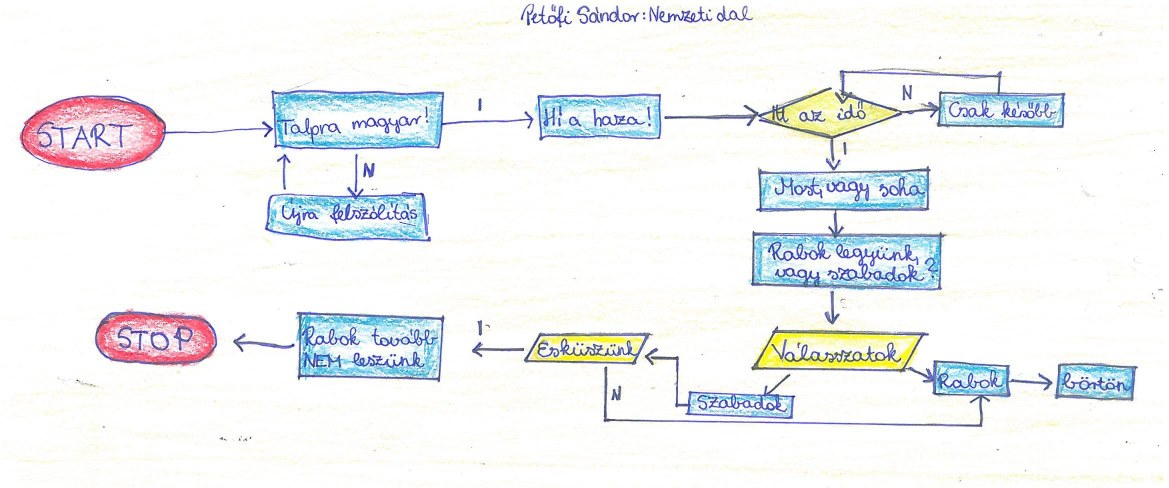 Petőfi Sándor: Nemzeti dal
START
Talpra magyar!
I
Hí a haza!
Itt az idő
N
Csak később
N
Újra felszólítás
I
Most, vagy soha
Rabok legyünk,
vagy szabadok?
Válasszatok
Rabok
börtön
Szabadok
Esküszünk
N
I
Rabok tovább
NEM leszünk
STOP